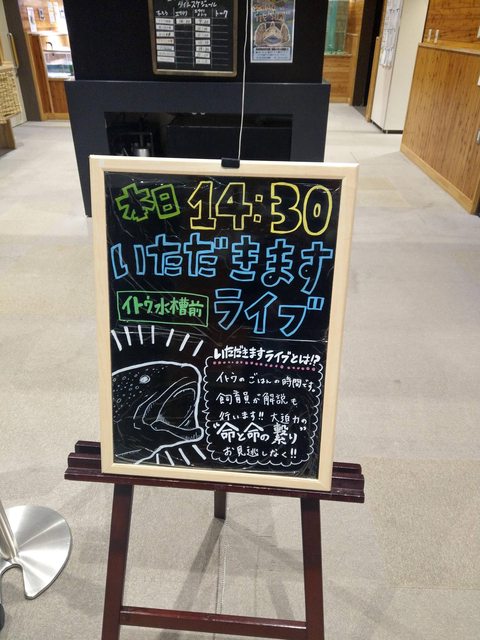 本日 14:30
いただきます
イトウ水槽前
ライブ
いただきますライブとは!?
イトウのごはんの時間です。
飼育員が解説も
行います!! 大迫力の
"命と命の繋り"
お見逃しなく!!